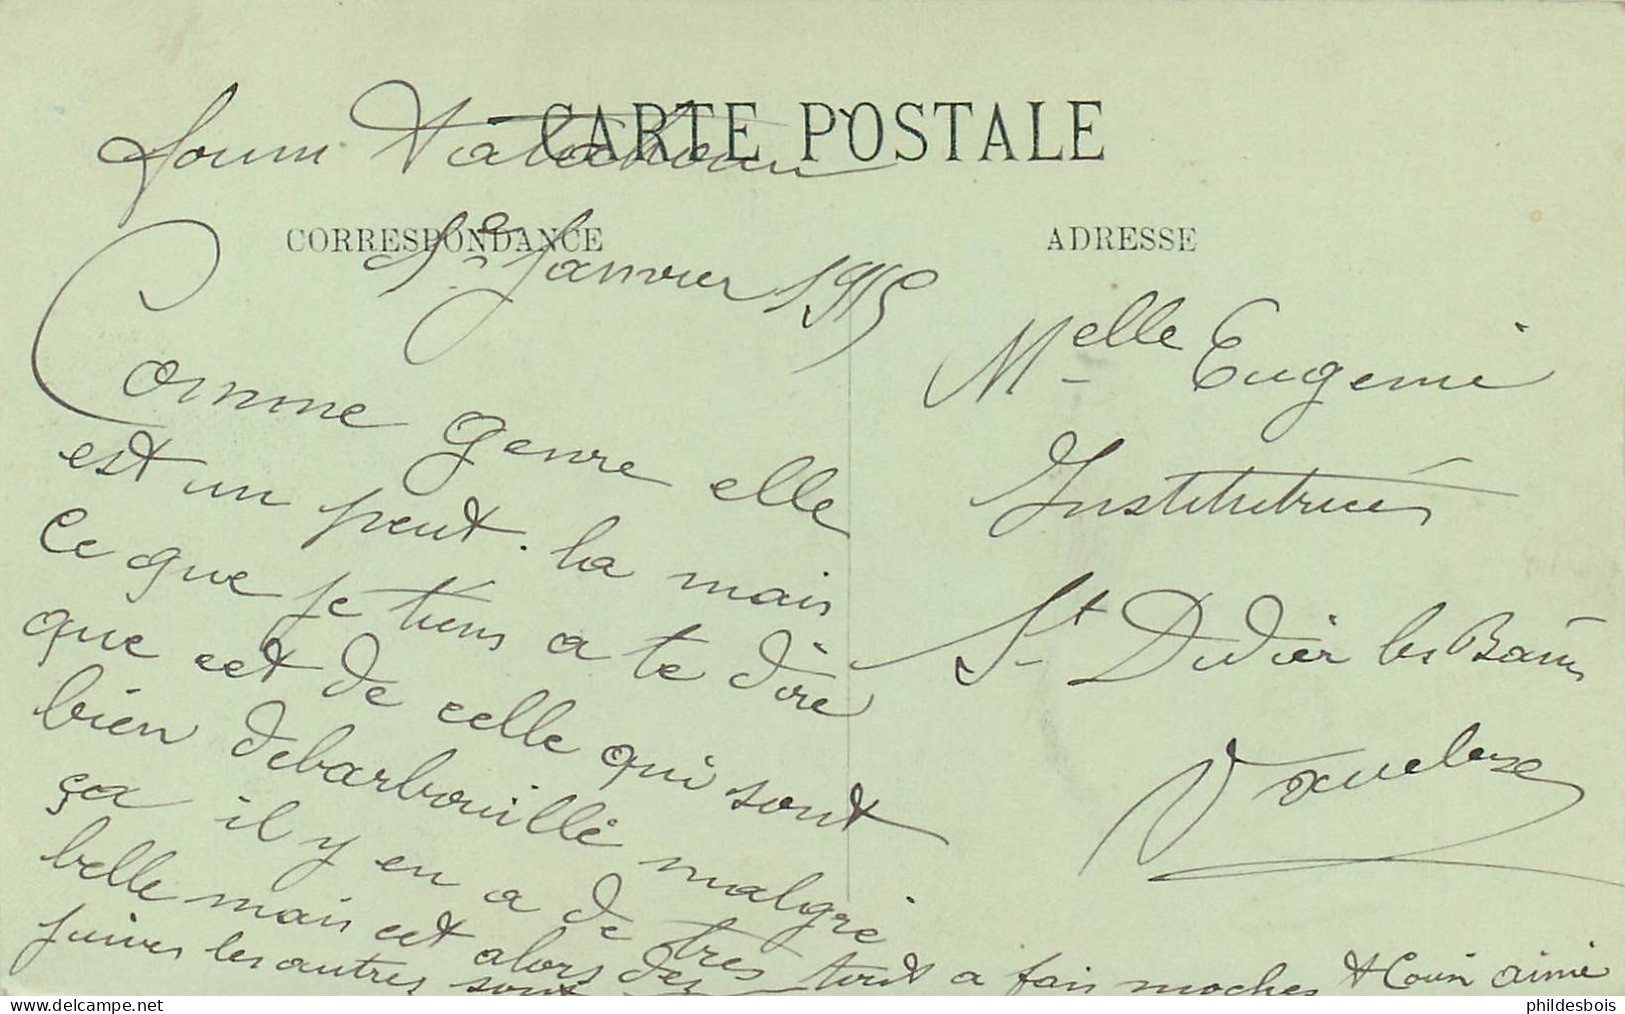 CARTE POSTALE
CORRESPONDANCE
Janvier 1915
Comme genre elle
est un peut. la mais
ce que je tiens a te dire
que cet de celle qui sont
bien debarbouillé malgré
ça il y en a de très
belle mais cet alors des
juives les autres sont tout a fais moches
ADRESSE
Melle Eugenie
Institutrice
St Didier les Bains
Vaucluse
aimé
phildesbois